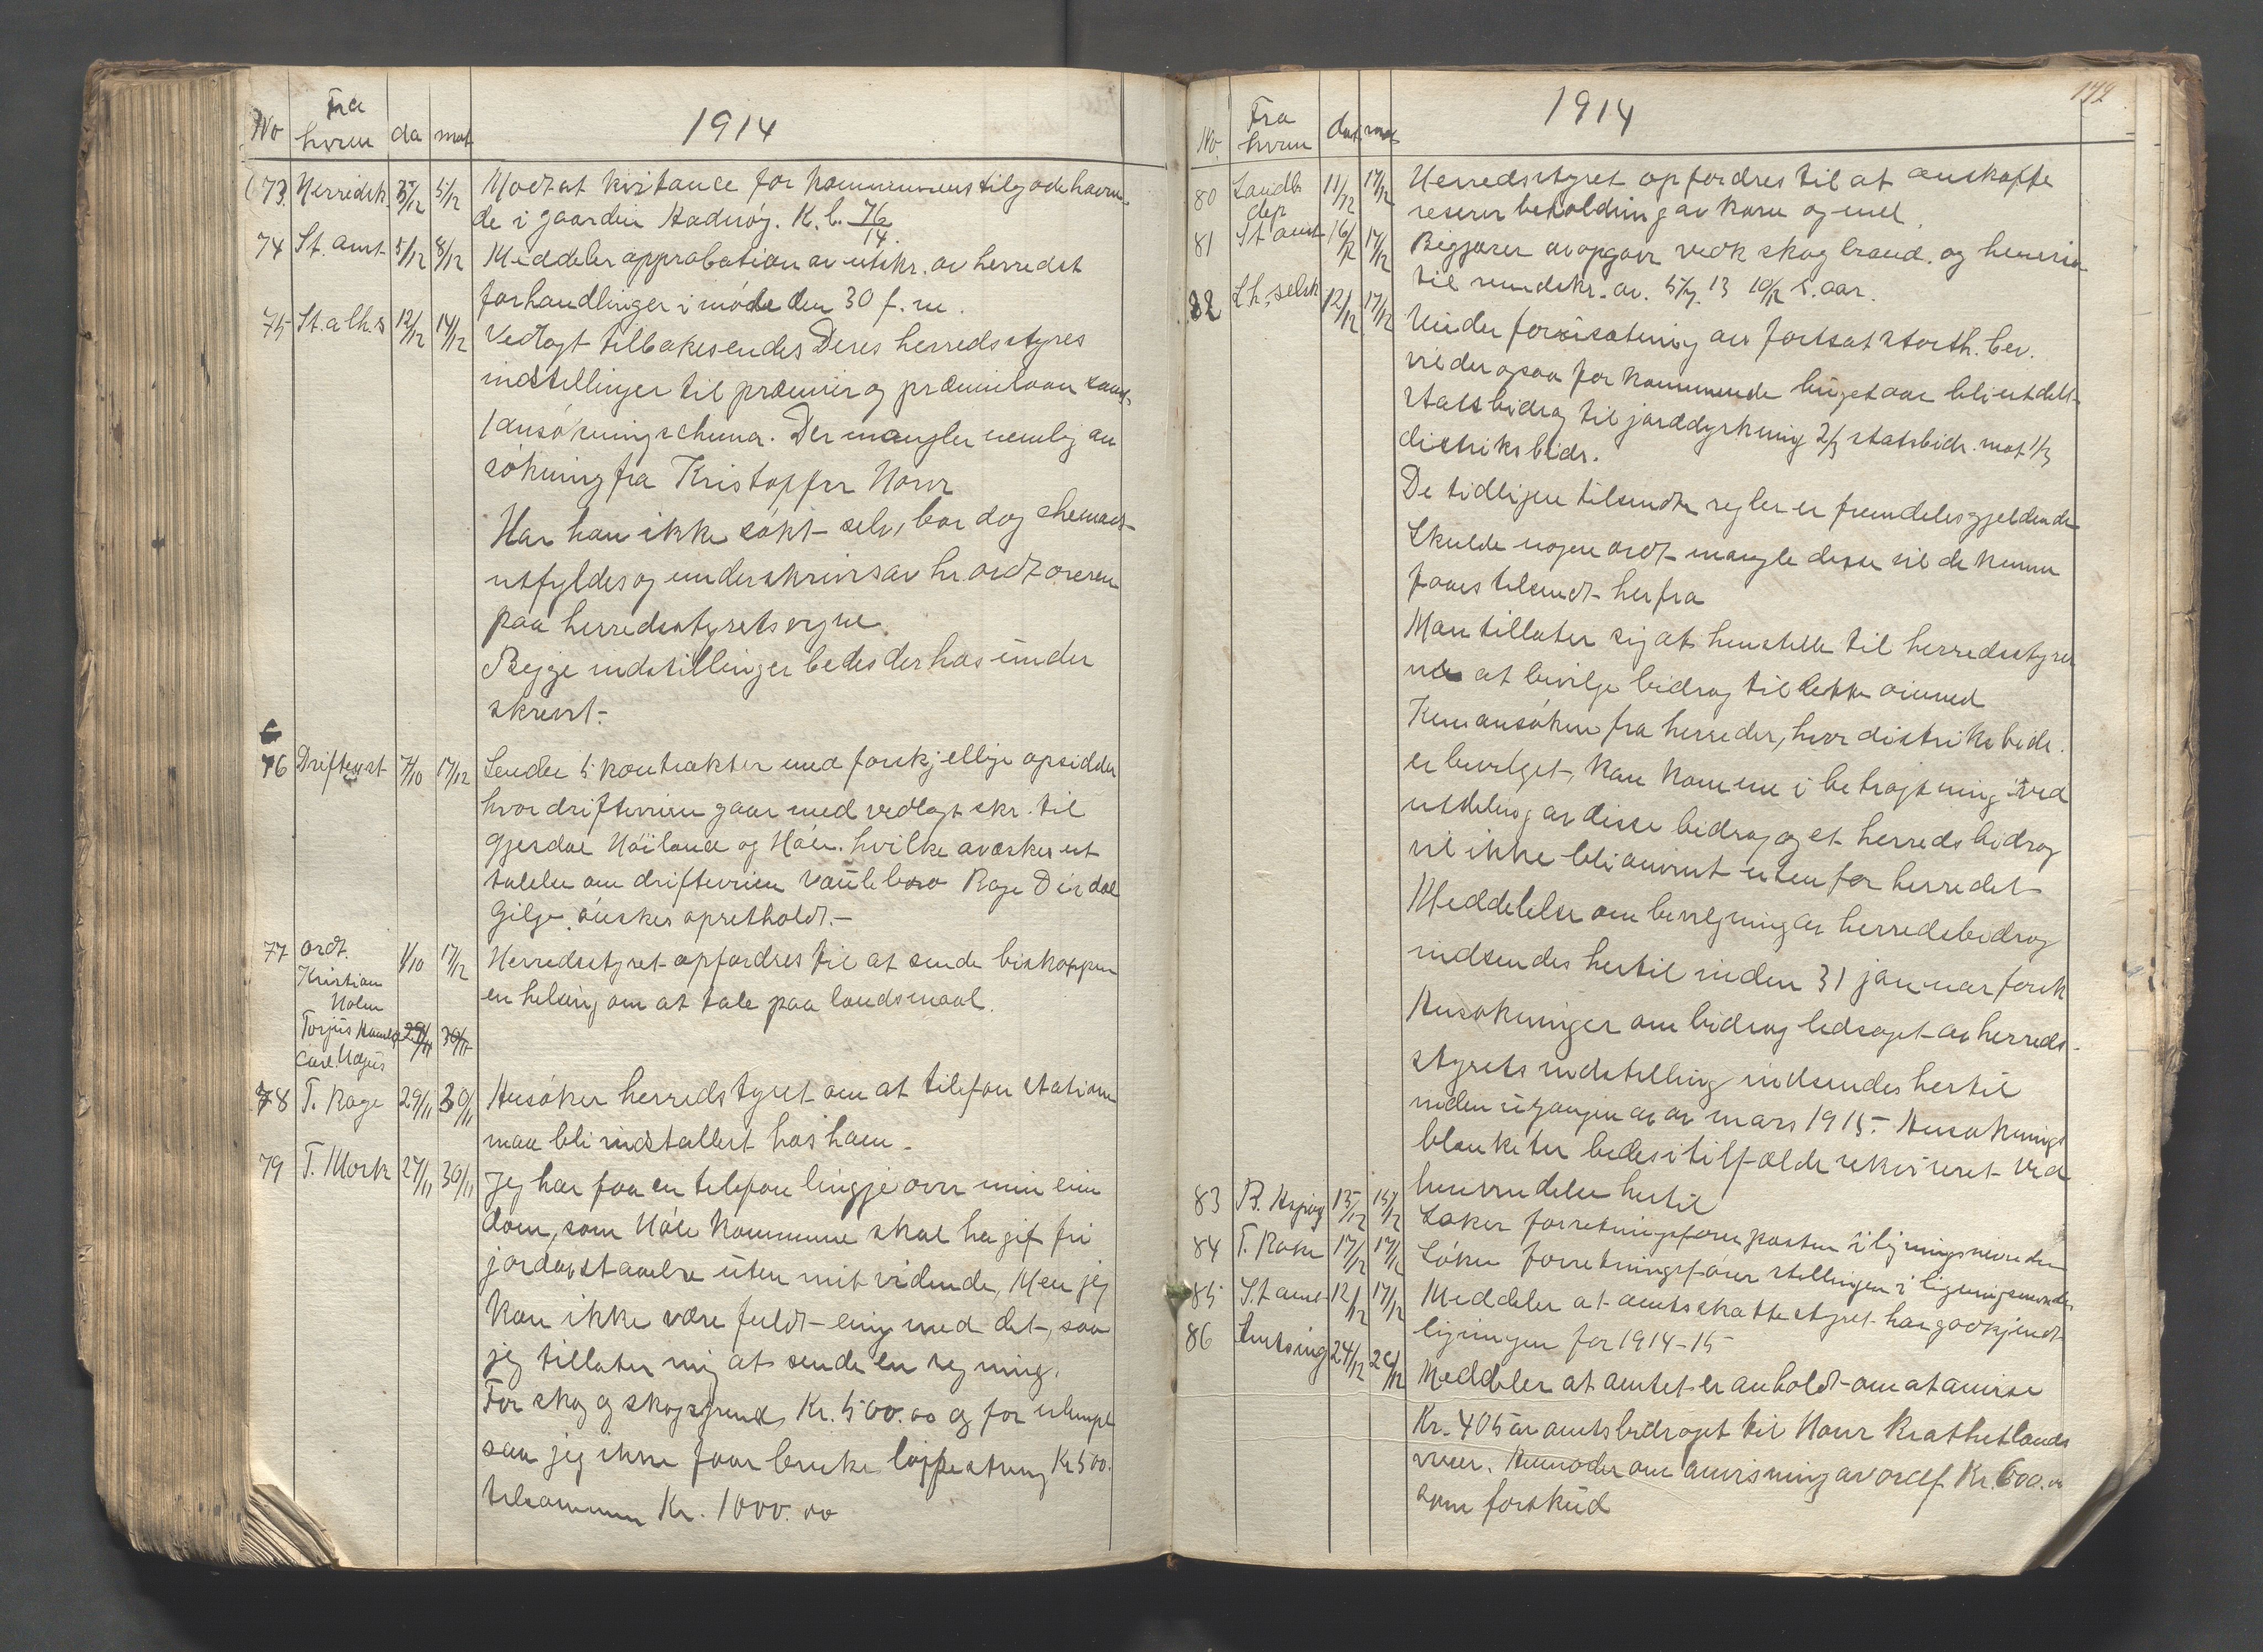 1914
No Fra hvem da mot
73. Herredsk. 3/12 5/12 Modtat kvitance for kommunens tilgodehaven-
de i gaarden Hadnøy. K. b. 76/14.
74 St. amt 5/12 8/12 Meddeler approbation av utskr. av herredst
forhandlinger i møde den 30 f. m.
75 St. a lh. s 12/12 14/12 Vedlagt tilbakesendes Deres herredsstyres
indstillinger til præmier og præmielaan samt
1 ansökningschema. Der mangler nemlig an
sökning fra Kristopfer Haver
Har han ikke sökt selv, bør dog chemaet
utfyldes og underskrives av hr. ordföreren
paa herredsstyrets vegne.
Begge indstillinger bedes derhos under
skrevet.
76 Driftsst 7/10 17/12 Sender 5 kontrakter med forskjellige opsidder
hvor drifteveien gaar med vedlagt skr. til
Gjesdal Höiland og Höle. hvilke avæsker ut
talelse om drifteveien Rage Dirdal
Gilje önskes opretholdt.-
77 ordf. Kristian Holm 1/10 17/12 Herredsstyret opfordres til at sende biskoppen
en helsing om at tale paa landsmaal.
Torjus 29/11 30/11
Carl.
78 T. Rage 29/11 30/11 Ansöker herredstyret om at tilefon station
maa bli indstallert hos ham.
79 T. Mork 27/11 30/11 Jeg har faa en telefon lingje over min eien
dom, som Höle kommune skal ha gif fri
jordavstaaelse uten mit vidende, Men jeg
kan ikke være fuldt enig med det, saa
jeg tillater mig at sende en regning.
For skog og skogsgrund Kr. 500.00 og for ulempe
saa jeg ikke faar bruke löypestreng Kr 500.
tilsammen Kr. 1000.00
142
1914
No. Fra hvem dat. mot
80 Landb dep 11/12 17/12 Herredsstyret opfordres til at anskaffe
reserve beholdning av korn og mel
81 St amt 16/12 17/12 Begjærer avopgave vedk skog brand. og henvise
til rundskr. av. 5/7. 13 10/12 s. aar.
82 Lh. selsk 12/12 17/12 Under forutsætning av fortsat storth. bev.
vil der ogsaa for kommende budgetaar bli utdelt
statsbidrag til jorddyrkning 2/3 statsbidr. mot 1/3
distriksbidr.
De tidligere tilsendte regler er fremdeles gjeldende
Skulde nogen ordf. mangle disse vil de kunne
faaes tilsendt herfra
Man tillater sig at henstille til herredsstyrer
ne at bevilge bidrag til dette öiemed
Kun ansökere fra herreder, hvor distriksbidr.
er bevilget, kan komme i betragtning ved
utdeling av disse bidrag og et herreds bidrag
vil ikke bli anvent utenfor herredet
Meddelelse om bevilgning av herredsbidrag
indsendes hertil inden 31 januar förstk
Ansøkninger om bidrag ledsaget av herreds-
styrets indstelling indsendes hertil
inden utgangen av av mars 1915. Ansøknings
blanketer bedes i tilfælde rekvireret ved
henvendelse hertil
83 B. Espög 15/12 15/12 Søker forretningsförer posten i ligningsnevnden
84 T. Rake 17/12 17/12 Söker forretningsförer stellingen i ligningsnevnden
85 St amt 12/12 17/12 Meddeler at amtsskattestyret har godkjendt
ligningen for 1914-15
86 Amtsing 24/12 28/12 Meddeler at amtet er anholdt om at anvise
Kr. 405 av amtsbidraget til Haver Brathetlands
veien. Anmoder om anvisning av ordf. Kr. 600.00
som forskud